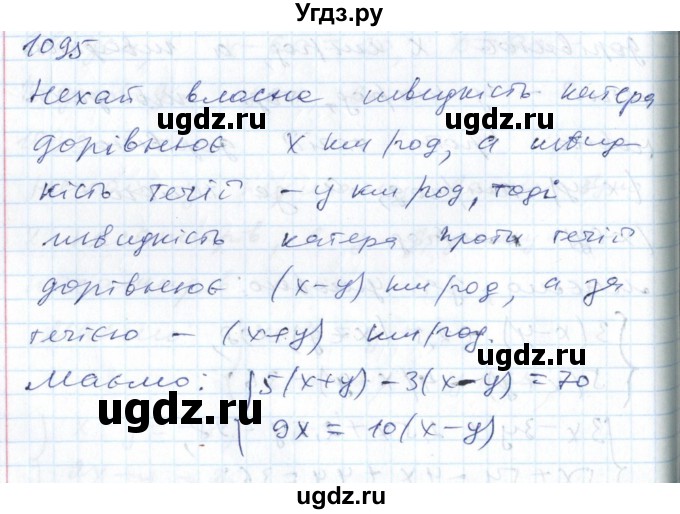 Угдз.ру
1095
Нехай власна швидкість катера
ugdz.ru ugdz.ru
дорівнює x км/год, а швид-
кість течії - y км/год, тоді
швидкість катера проти течії
ugdz.ru
дорівнює (x-y) км/год, а за
течією - (x+y) км/год.
ugdz.ru
Маємо: { 5(x+y) - 3(x-y) = 70
ugdz.ru
9x = 10(x-y)
ugdz.ru